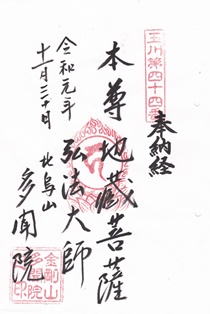 玉川第四十四番
奉納経
本尊地蔵菩薩
弘法大師
令和元年
十一月三十日
北烏山
多聞院
金剛山
多聞院
印